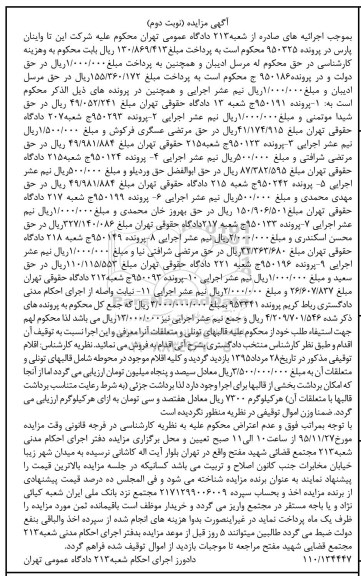 آگهی مزایده (نوبت دوم)
بموجب اجرائیه های صادره از شعبه۲۱۳ دادگاه عمومی تهران محکوم علیه شرکت این تا واپنان
پارس در پرونده ۹۵۰۳۲۵ محکوم است به پرداخت مبلغ۱۳۰/۸۶۹/۴۱۳ ریال بابت محکوم به وهزینه
کارشناسی در حق محکوم له مرسل ادیبان و همچنین به پرداخت مبلغ۱/۰۰۰/۰۰۰ریال در حق
دولت و در پرونده۹۵۰۱۸۶ ج محکوم است به پرداخت مبلغ ۱۵۵/۳۶۰/۱۷۲ریال در حق مرسل
ادیبان و مبلغ۱/۰۰۰/۰۰۰ریال نیم عشر اجرایی و همچنین در پرونده های ذیل الذکر محکوم
است به: ۱-پرونده ۹۵۰۱۹۱ج شعبه ۱۳ دادگاه حقوقی تهران مبلغ ۴۹/۰۵۲/۲۴۱ ریال در حق
شیدا موتمنی و مبلغ۱/۰۰۰/۰۰۰ریال نیم عشر اجرایی ۲-پرونده ۹۵۰۲۹۳ج شعبه۲۰۷ دادگاه
حقوقی تهران مبلغ ۴۱/۱۷۴/۹۱۵ریال در حق مرتضی عسگری فرکوش و مبلغ ۱/۵۰۰/۰۰۰ریال
نیم عشر اجرایی ۳-پرونده ۹۵۰۱۲۳ج شعبه۲۱۵ دادگاه حقوقی تهران مبلغ ۴۹/۹۸۱/۸۸۴ ریال در حق
مرتضی شرافتی و مبلغ ۵۰۰/۰۰۰ریال نیم عشر اجرایی ۴- پرونده ۹۵۰۱۲۴ج شعبه۲۱۵ دادگاه
حقوقی تهران مبلغ ۸۷/۳۸۲/۵۹۵ ریال در حق ابوالفضل حق وردیلو و مبلغ ۵۰۰/۰۰۰ریال نیم عشر
اجرایی ۵- پرونده ۹۵۰۲۴۲ج شعبه ۲۱۵ دادگاه حقوقی تهران مبلغ ۴۹/۹۸۱/۸۸۴ ریال در حق
مهدی محمدی و مبلغ ۵۰۰/۰۰۰ریال نیم عشر اجرایی ۶- پرونده ۹۵۰۱۹۹ج شعبه ۲۱۷ دادگاه
حقوقی تهران مبلغ۱۵۰/۹۰۶/۵۰۱ ریال در حق بهروز خان محمدی و مبلغ۱/۰۰۰/۰۰۰ریال نیم
عشر اجرایی ۷-پرونده ۹۵۰۱۳۳ج شعبه ۲۱۷دادگاه حقوقی تهران مبلغ ۳۲۷/۱۴۰/۰۸۶ریال در حق
محسن اسکندری و مبلغ۲/۰۰۰/۰۰۰ریال نیم عشر اجرایی ۸-پرونده ۹۵۰۱۴۹ج شعبه ۲۱۸ دادگاه
حقوقی تهران مبلغ ۳۲/۳۶۳/۶۸۰ ریال در حق مرتضی شرافتی نیا و مبلغ ۱/۰۰۰/۰۰۰ریال نیم عشر
اجرایی ۹-پرونده ۹۵۰۱۹۶ج شعبه ۲۲۱ دادگاه حقوقی تهران مبلغ ۱۰/۱۱۵/۵۵۳ ریال در حق
سعید و مبلغ ۱/۰۰۰/۰۰۰ریال نیم عشر اجرایی ۱۰-پرونده ۹۵۰۰۹۳ج شعبه۲۱۲ دادگاه حقوقی تهران
مبلغ ۲۶/۶۰۷/۸۳۷ و مبلغ ۲/۰۰۰/۰۰۰ریال نیم عشر اجرایی ۱۱- نیابت واصله از اجرای احکام مدنی
دادگستری رباط کریم پرونده ۹۵۳۴۴۱ بمبلغ ریال که جمع کل محکوم به پرونده های
ذکر شده ۴/۲۰۹/۷۰۱/۵۴۶ ریال و جمع نیم عشر اجرایی نیز ۱۳/۰۰۰/۰۰۰ریال می باشد لذا محکوم لهم
جهت استیفاء طلب خود از محکوم علیه قالبهای تونلی و متعلقات آنرا معرفی و این اجرا نسبت به توقیف آن
اقدام و طبق نظر کارشناس منتخب دادگستری بشرح آتی اقدام به فروش می نمائید. نظریه کارشناس: اقلام
توقیفی مذکور در تاریخ۲۸ مرداد۱۳۹۵ بازدید گردید و کلیه اقلام موجود در محوطه شامل قالبهای تونلی و
متعلقات آن به مبلغ ۳/۵۰۰/۰۰۰/۰۰۰ریال معادل سیصد و پنجاه میلیون تومان ارزیابی می گردد اما از آنجا
که امکان برداشت بخشی از قالبها برای اجرا وجود دارد لذا برداشت جزئی (به شرط رعایت متناسب برداشت
قالبها با متعلقات آن) هرکیلوگرم ۷۳۰۰ ریال معادل هفتصد و سی تومان به ازای هرکیلوگرم ارزیابی می
گردد. ضمنا وزن اموال توقیفی در نظریه منظور نگردیده است
با توجه بمراتب فوق و عدم اعتراض محکوم علیه به نظریه کارشناسی در فرجه قانونی وقت مزایده
مورخ۹۵/۱۱/۲۷ از ساعت۱۰ الی۱۱ صبح تعیین و محل برگزاری مزایده دفتر اجرای احکام مدنی
شعبه۲۱۳ مجتمع قضائی شهید مفتح واقع در تهران بلوار آیت اله کاشانی نرسیده به میدان شهر زیبا
خیابان مخابرات جنب کانون اصلاح و تربیت می باشد کسانیکه در جلسه مزایده بالاترین قیمت را
پیشنهاد نمایند به عنوان برنده مزایده شناخته می شود و فی المجلس ده درصد قیمت پیشنهادی
از برنده مزایده اخذ و بحساب سپرده ۲۱۷۱۲۹۹۰۰۶۰۰۹ مجتمع نزد بانک ملی ایران شعبه کیائی
نژاد و یا باجه مستقر در مجتمع واریز می گردد و خریدار موظف است باقیمانده ثمن مورد مزایده را
ظرف یک ماه پرداخت نماید در غیراینصورت بدوا هزینه های انجام شده از سپرده اخذ والباقی بنفع
دولت ضبط می گردد طالبین میتوانند ۵ روز قبل از موعد مزایده بدفتر اجرای احکام مدنی شعبه۲۱۳
مجتمع قضایی شهید مفتح مراجعه تا موجبات بازدید از اموال توقیف شده فراهم گردد.
۱۱۰/۱۳۴۴۴۷ دادورز اجرای احکام شعبه۲۱۳ دادگاه عمومی تهران